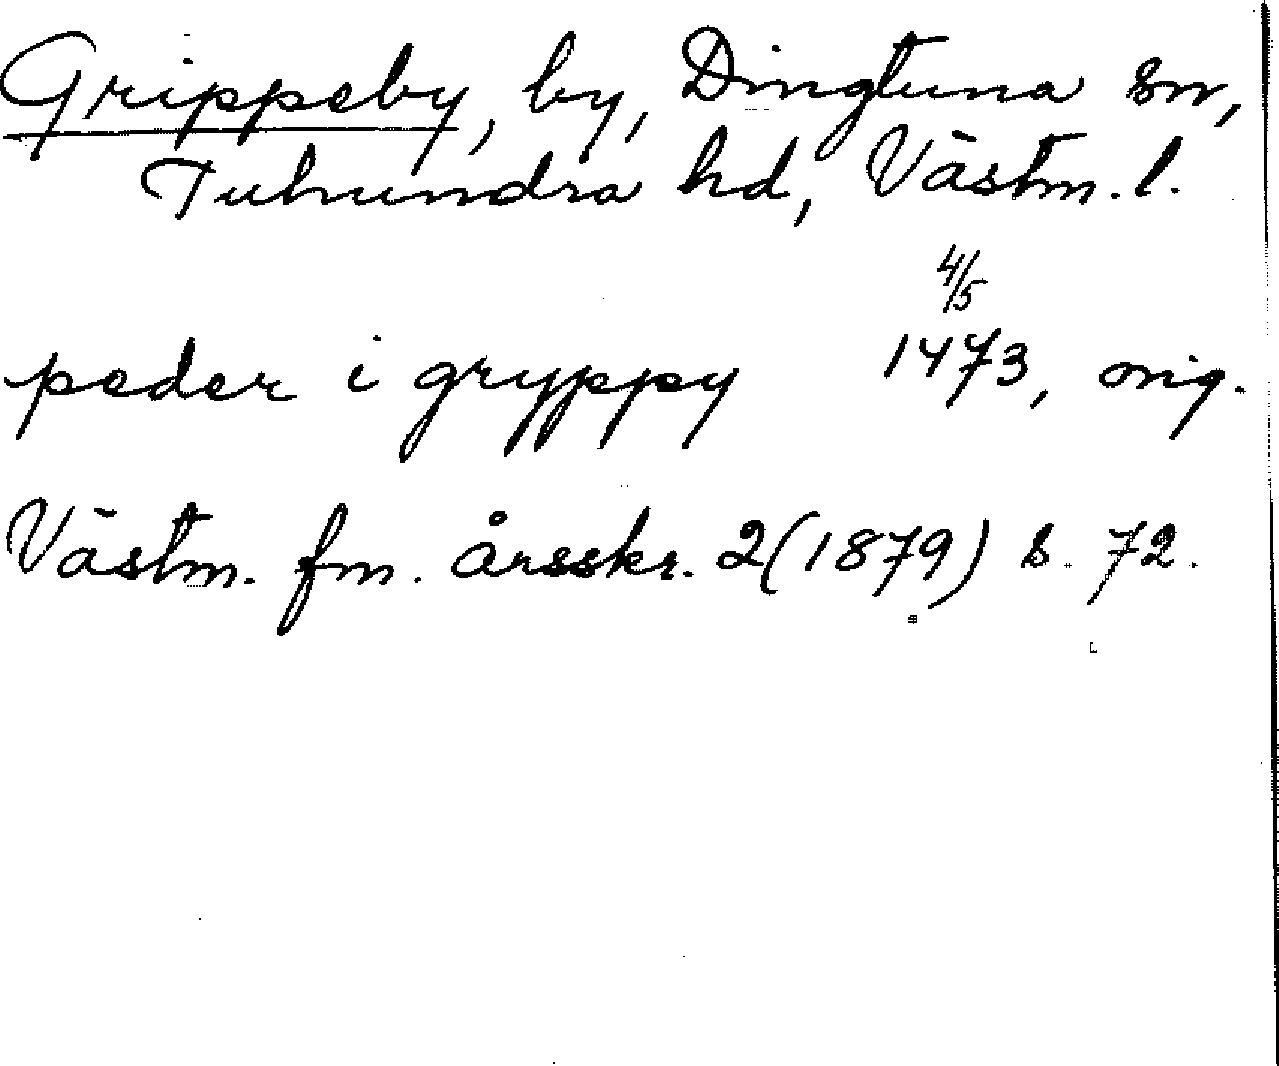 Grippeby, by, Dingtuna sn,
Tuhundra hd, Västm. l.
4/5
peder i gryppy 1473, orig.
Västm. fm. årsskr. 2(1879) s. 72.